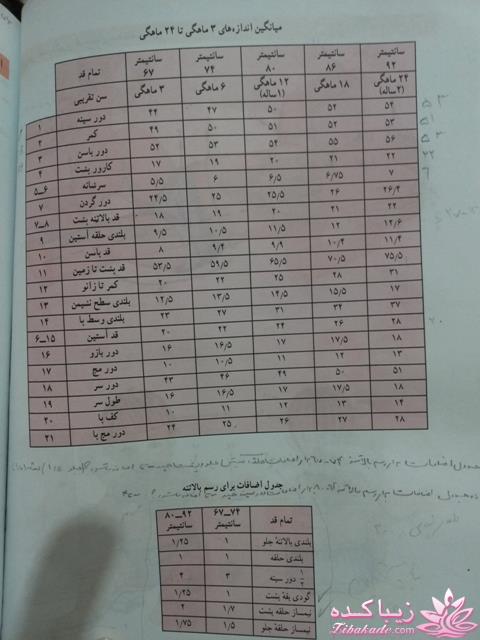 میانگین اندازه‌های ۳ ماهگی تا ۲۴ ماهگی
سانتیمتر ۹۲ سانتیمتر ۸۶ سانتیمتر ۸۰ سانتیمتر ۷۴ سانتیمتر ۶۷ تمام قد
۲۴ ماهگی (۲ساله) ۱۸ ماهگی ۱۲ ماهگی (۱ساله) ۶ ماهگی ۳ ماهگی سن تقریبی
۵۴ ۵۲ ۵۰ ۴۷ ۴۴ دور سینه ۱
۵۳ ۵۲ ۵۱ ۵۰ ۴۹ کمر ۲
۵۶ ۵۵ ۵۴ ۵۳ ۵۲ دور باسن ۳
۲۲ ۲۱ ۲۰ ۱۹ ۱۷ کارور پشت ۴
۷ ۶/۷۵ ۶/۵ ۶ ۵/۵ سرشانه ۵_۶
۲۶/۴ ۲۶ ۲۵/۵ ۲۵ ۲۴/۵ دور گردن ۷
۲۲ ۲۱ ۲۰ ۱۹ ۱۸ قد بالاتنه پشت ۷_۸
۱۲/۶ ۱۲ ۱۱/۵ ۱۰/۵ ۹/۵ بلندی حلقه آستین ۹
۱۱/۴ ۱۰/۴ ۹/۹ ۹/۴ ۸ قد باسن ۱۰
۷۵/۵ ۷۰/۵ ۶۵/۵ ۵۹/۵ ۵۳/۵ قد پشت تا زمین ۱۱
۳۱ ۲۸ ۲۵ ۲۲ ۲۰ کمر تا زانو ۱۲
۱۷ ۱۵/۵ ۱۴/۵ ۱۳/۵ ۱۲/۵ بلندی سطح نشیمن ۱۳
۳۷ ۳۲ ۳۱ ۲۷ ۲۳ بلندی وسط پا ۱۴
۲۸ ۲۶ ۲۴ ۲۲ ۲۰ قد آستین ۱۵_۶
۱۸ ۱۷/۵ ۱۷ ۱۶/۵ ۱۶ دور بازو ۱۶
۱۳ ۱۲ ۱۱ ۱۰/۵ ۱۰ دور مچ ۱۷
۵۱ ۵۰ ۴۹ ۴۶ ۴۳ دور سر ۱۸
۱۸ ۱۷/۵ ۱۷ ۱۶/۵ ۱۶ طول سر ۱۹
۱۴ ۱۳ ۱۲ ۱۱ ۱۰ کف پا ۲۰
۲۸ ۲۷ ۲۶ ۲۵ ۲۴ دور مچ پا ۲۱
جدول اضافات برای رسم بالاتنه
۸۰_۹۲ سانتیمتر ۶۷_۷۴ سانتیمتر تمام قد
۱/۲۵ ۱ بلندی بالاتنهٔ جلو
۱ ۱ بلندی حلقه
۴ ۳ ۱/۲ دور سینه
۱/۲۵ ۱ گودی یقهٔ پشت
۲ ۱/۷ نیمساز حلقه پشت
۱/۷۵ ۱/۵ نیمساز حلقهٔ جلو
زیباکده
Zibakade.com